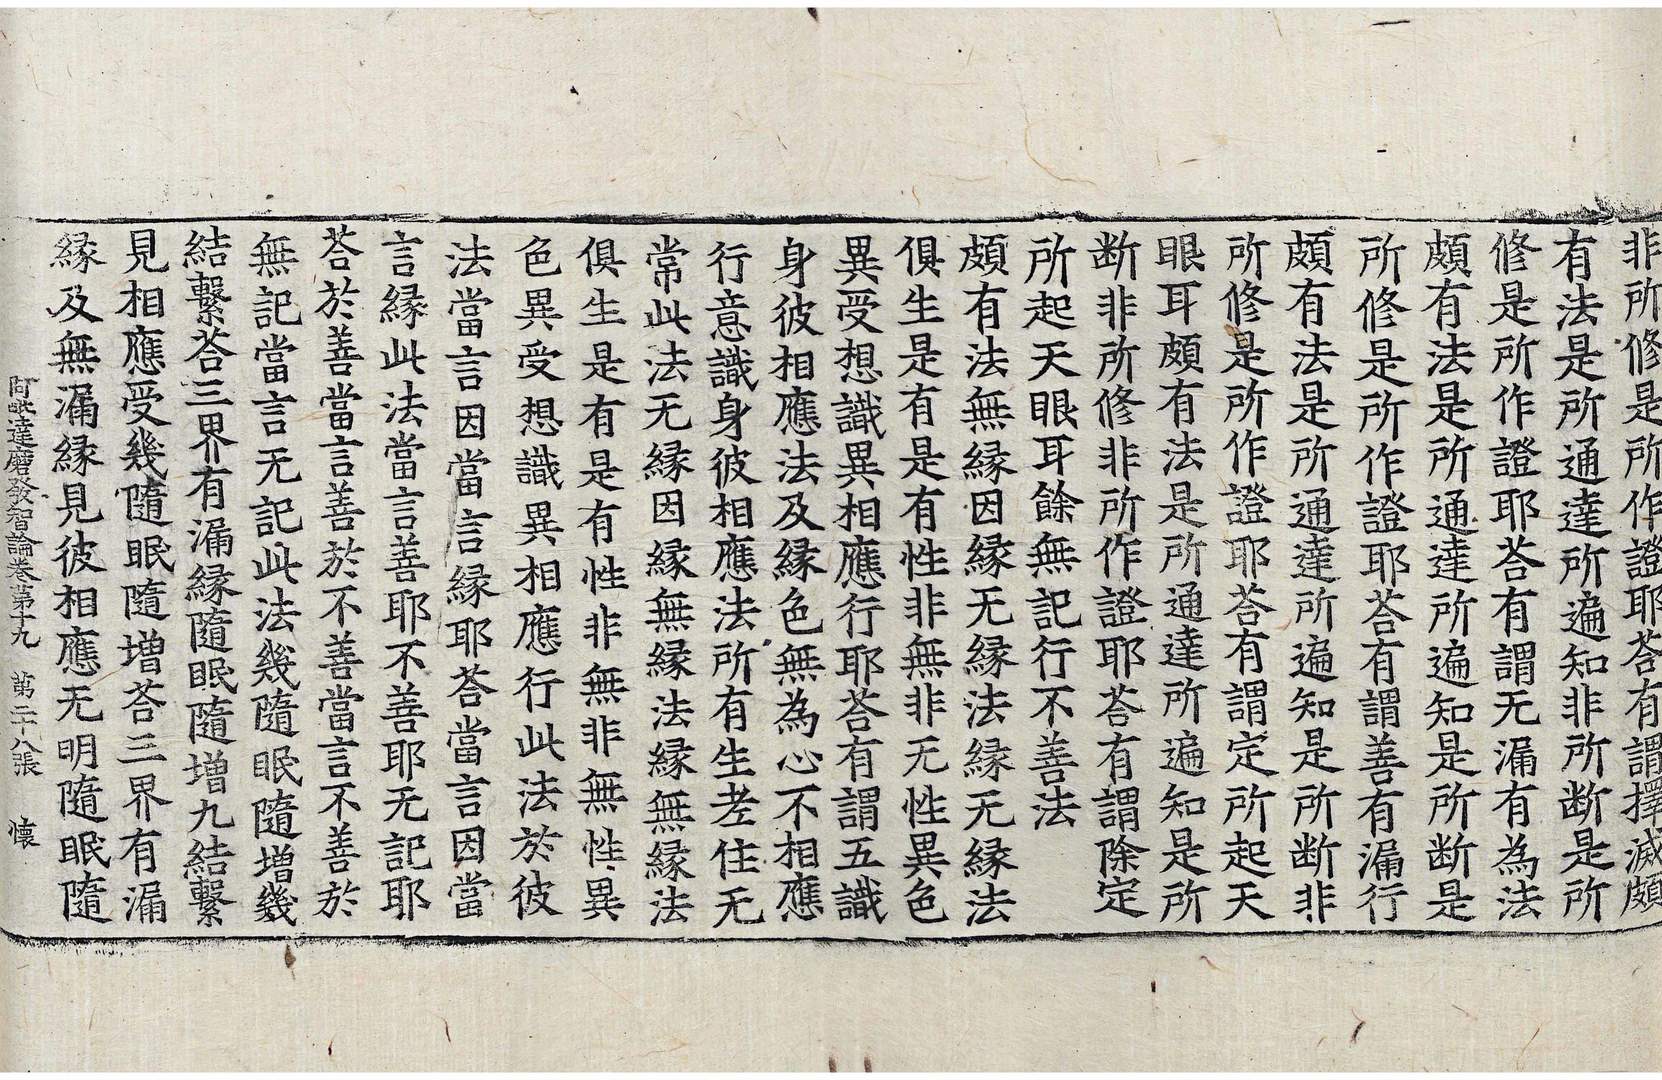 非所修是所作證耶荅有謂擇滅頗
有法是所通達所遍知非所断是所
修是所作證耶荅有謂无漏有為法
頗有法是所通達所遍知是所断是
所修是所作證耶荅有謂善有漏行
頗有法是所通達所遍知是所断非
所修是所作證耶荅有謂定所起天
眼耳頗有法是所通達所遍知是所
断非所修非所作證耶荅有謂除定
所起天眼耳餘無記行不善法
頗有法無緣因緣无緣法緣无緣法
俱生是有是有性非無非无性異色
異受想識異相應行耶荅有謂五識
身彼相應法及緣色無為心不相應
行意識身彼相應法所有生老住无
常此法无緣因緣無緣法緣無緣法
俱生是有是有性非無非無性異
色異受想識異相應行此法於彼
法當言因當言緣耶荅當言因當
言緣此法當言善耶不善耶无記耶
荅於善當言善於不善當言不善於
無記當言无記此法幾隨眠隨增幾
結繋荅三界有漏緣隨眠隨增九結繋
見相應受幾隨眠隨增荅三界有漏
緣及無漏緣見彼相應无明隨眠隨
阿毗達磨發智論卷第十九 第二十八張 懷